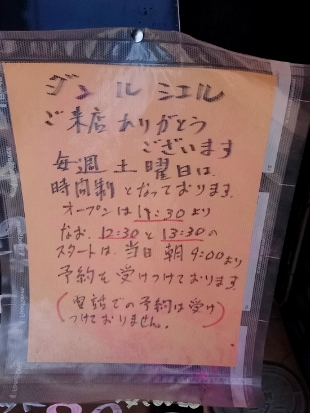 ジンルミエル
ご来店ありがとう
ございます
毎週土曜日は、
時間制となっております。
オープンは11:30より
なお、12:30と13:30の
スタートは、当日朝9:00より
予約を受けつけております。
(電話での予約は受け
つけておりません。)